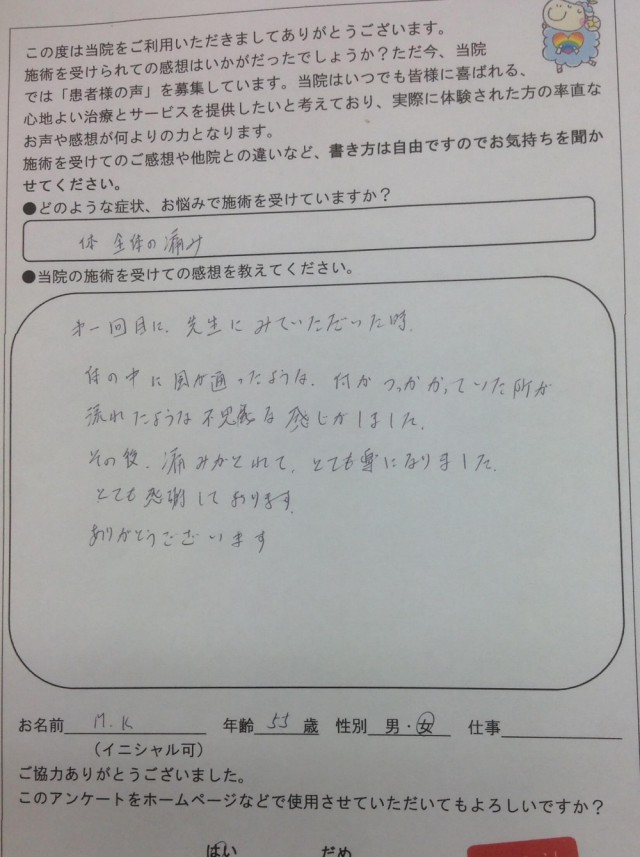 この度は当院をご利用いただきましてありがとうございます。
施術を受けられての感想はいかがだったでしょうか？ただ今、当院
では「患者様の声」を募集しています。当院はいつでも皆様に喜ばれる、
心地よい治療とサービスを提供したいと考えており、実際に体験された方の率直な
お声や感想が何よりの力となります。
施術を受けてのご感想や他院との違いなど、書き方は自由ですのでお気持ちを聞か
せてください。
●どのような症状、お悩みで施術を受けていますか？
体 全体の痛み
●当院の施術を受けての感想を教えてください。
才一回目に、先生にみていただいた時、
体の中に風が通ったような、何かつっかかっていた所が
流れたような不思議な感じがしました。
その後、痛みがとれて、とても楽になりました。
とても感謝しております。
ありがとうございます
お名前 M.K 年齢 55 歳 性別 男・女 仕事
（イニシャル可）
ご協力ありがとうございました。
このアンケートをホームページなどで使用させていただいてもよろしいですか？
はい だめ